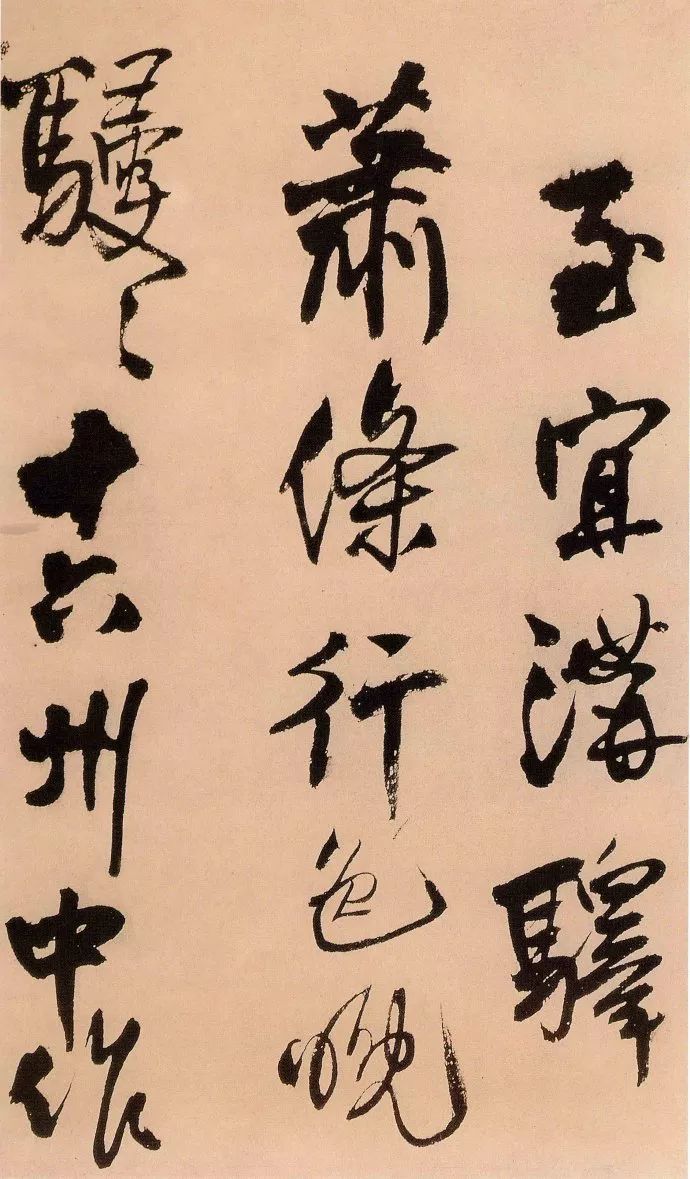 至宜溝驛
蕭條行色晚
駸〻十六州中作